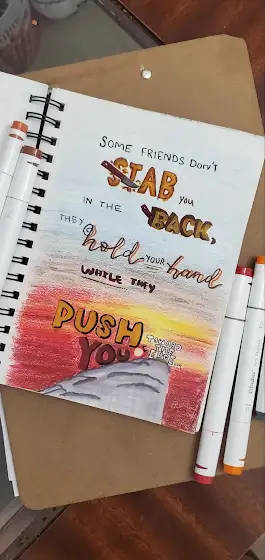 SOME FRIENDS DON'T
STAB YOU
IN THE BACK,
THEY hold YOUR hand
WHILE THEY
PUSH
YOU TOWARD
THE
EDGE...